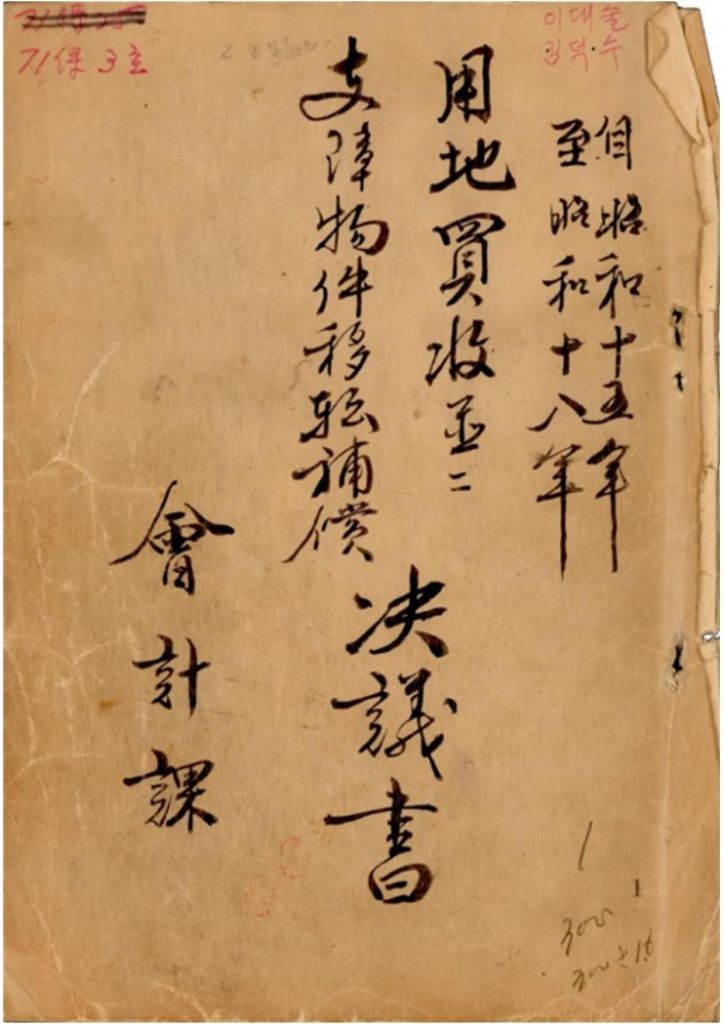 自昭和十五年
至昭和十八年
用地買收並ニ
支障物件移転補償
決議書
會計課
기保 3호
이대술
김덕수
1
1
300